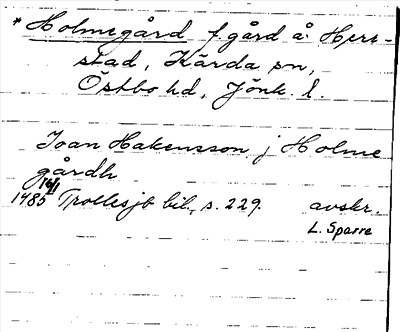 * Holmegård f. gård å Herr-
stad, Kärda sn,
Östbo hd, Jönk. l.
Joan Hakensson j Holme
gårdh
16/1
1485 Trollesjb bil., s. 229. avskr.
L. Sparre